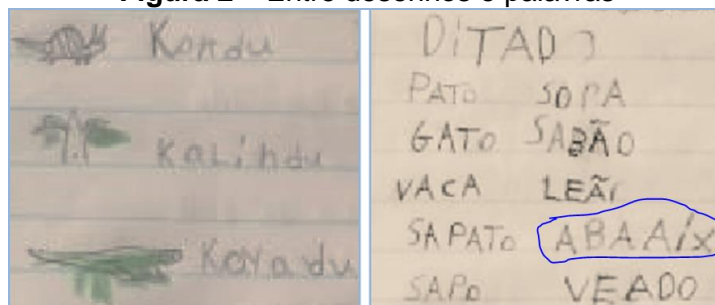 Figura 2 – Entre desenhos e palavras
Kondu
KaLindu
DITADO
PATO SOPA
GATO SABÃO
VACA LEÃO
SAPATO ABAAIX
SAPO VEADO